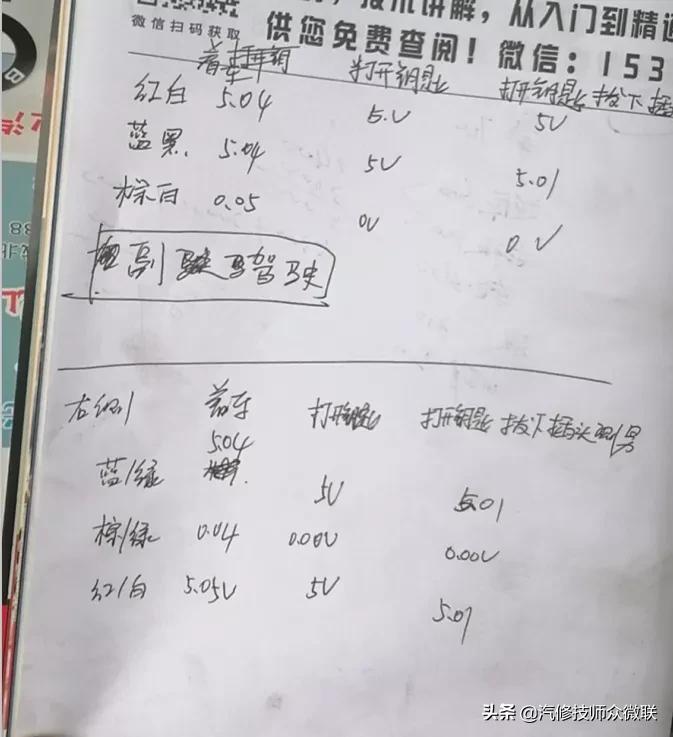 技术讲解，从入门到精通
微信扫码获取
供您免费查阅！微信：153
着车 打开钥匙 打开钥匙 拔下插
红白 5.04 5.V 5V
蓝黑. 5.04 5V 5.01
棕白 0.05 0V 0V
副驾驶
右侧 着车 打开钥匙 打开钥匙 拔下插头测量
5.04
蓝/绿 5V 5.01
棕/绿 0.04 0.00V 0.00V
红/白 5.05V 5V 5.01
头条 @汽修技师众微联